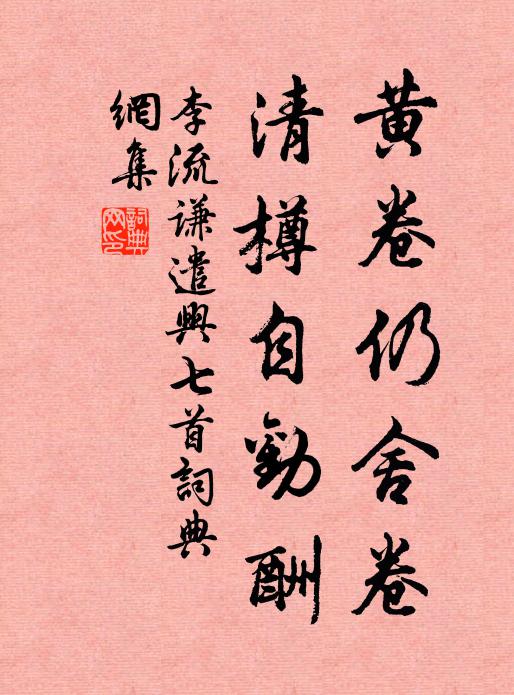 黄卷仍舍卷
清樽自勸酬
李流謙遣興七首詞典
網集
詞典
网印